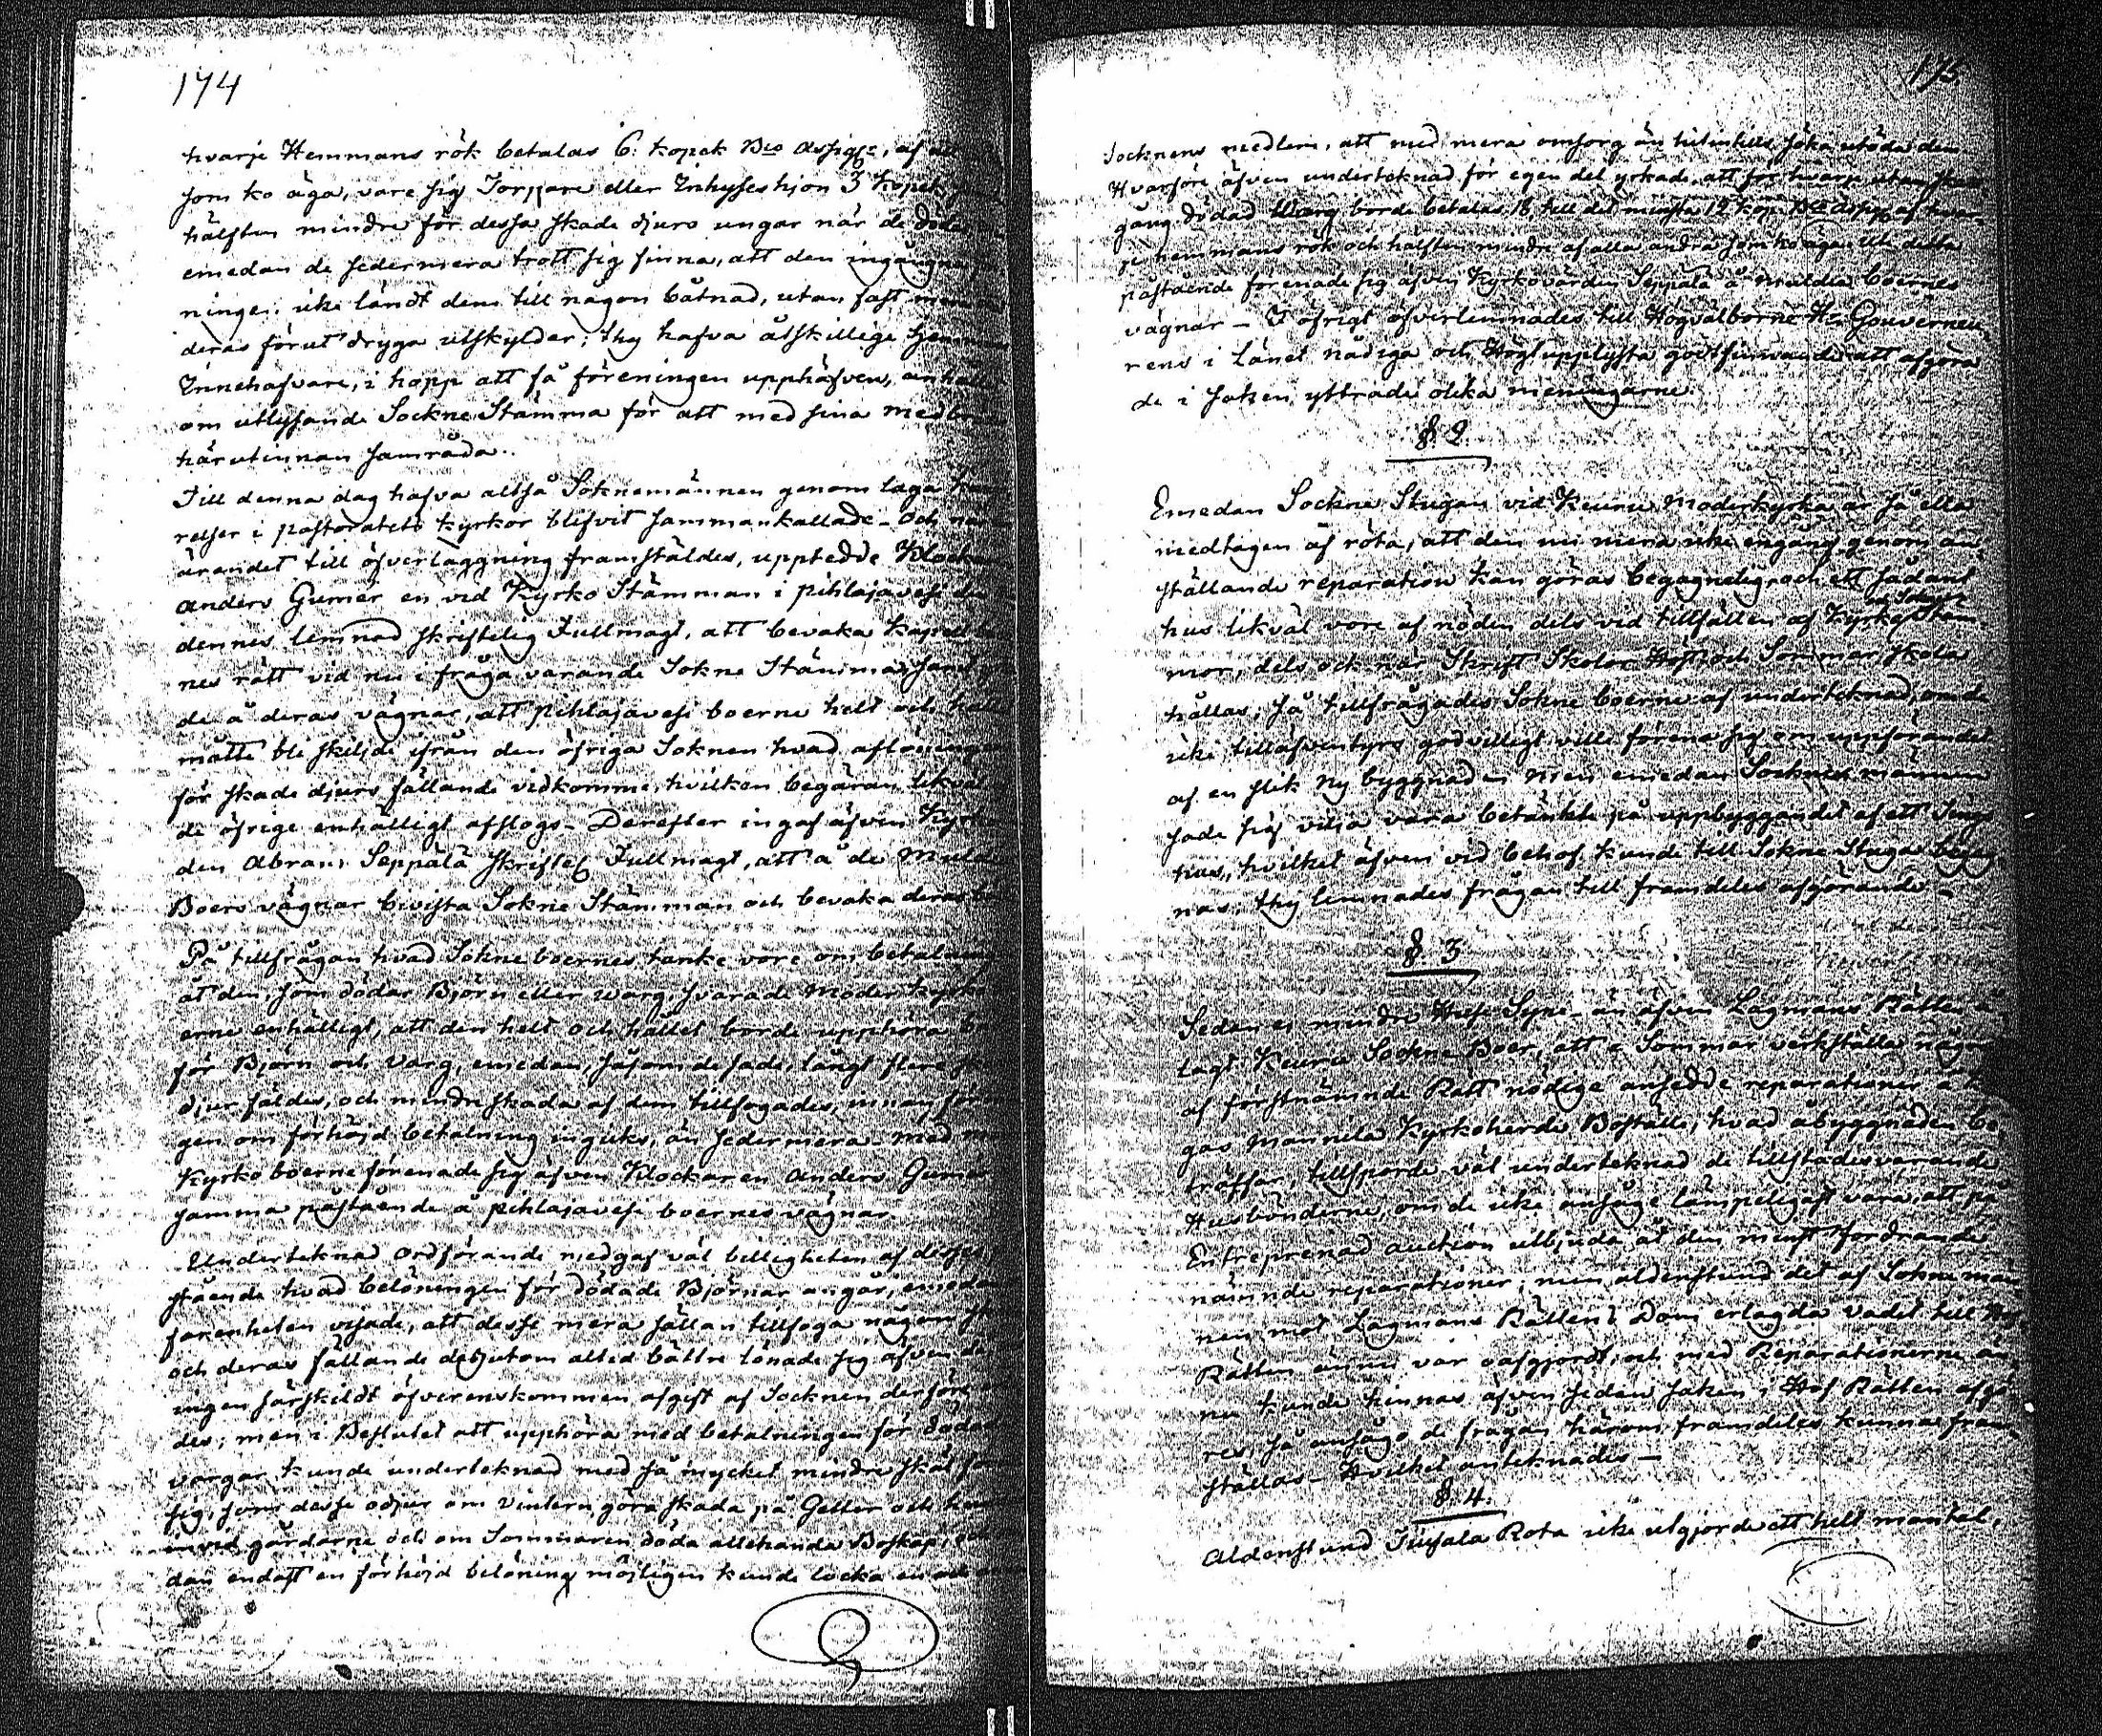 174
hvarje Hemmans rök betalas 6. kopek Bco Assign:, af
som ko äga, vare sig Torpare eller Inhyseshjon 3 kopek
hälften mindre för dessa skade djurs ungar när de döda
emedan de sedermera trott sig finna, att den ingångna
ningen icke ländt dem till någon båtnad, utan fast
deras förut dryga utskylder; thy hafva åtskillige Hemmans
Innehafvare, i hopp att få föreningen upphäfven, anhållit
om utlysande Sockne Stämma för att med sina
härutinnan samråda.
Till denna dag hafva altså Soknemännen genom laga
relser i pastoratets kyrkor blifvit sammankallade - Och när
ärendet till öfverläggning framstäldes, uppteddde Klockaren
Anders Gumer en vid Kyrko Stämman i pihlajavesi
dennes lemnad skriftelig Fullmagt, att bevaka kapell
nes rätt vid nu i fråga varande Sokne Stämma
de å deras vägnar, att pihlajavesi boerne helt och hållit
måtte bli skiljde ifrån den öfriga Soknen hvad aflöningen
för skade djurs fällande vidkomme, hvilken begäran likväl
de öfrige enhälligt afslogs - Derefter ingaf äfven Kyrko
den Abram Seppälä skriftel Fullmagt, att å de Multia
Boers vägnar bevista Sokne Stämman och bevaka deras
På tillfrågan hvad Sokne boernes tanke vore om betalning
åt den som dödar Björn eller Warg, svarade Moderkyrko
erne enhälligt, att den helt och hållet borde upphöra
för Björn och Varg, emedan, såsom de sade, långt flere
djur fäldes, och mindre skada af dem tillfogades, innan
gen om förhöjd betalning ingicks, än sedermera - Med
Kyrko boerne förenade sig äfven Klockaren Anders Gumer
samma påstående å pihlajavesi boernes vägnar.
Undertecknad Ordförande medgaf väl billigheten af
stående hvad belöningen för dödade Björnar angår, emedan
farenheten visade, att desse mera sällan tillfoga någon
och deras fällande dessutom altid bättre lönade sig, äfven
ingen särskildt öfverenskommen afgift af Socknen derföre
des; men i Beslutet att upphöra med betalningen för dödade
vargar kunde underteknad med så mycket mindre skäl
sig, som desse odjur om vintern göra skada på Getter och
invid gårdarne och om Sommaren döda allehanda Boskap,
dan endast en förhöjd belöning möjligen kunde locka en och
175
Socknens medlem, att med mera omsorg än hitintills söka utöda dem
Hvarföre äfven underteknad för egen del yrkade, att för hvarje
gång dödad Warg borde betalas 18, till det minsta 12 kop. Bco Assign af hvar-
je hemmans rök och hälften mindre af alla andra som ko äga. Uti detta
påstående förenade sig äfven Kyrkovärden Seppälä å Multia boernes
vägnar - I öfrigt öfverlemnades till Högvälborne Hr Gouverneu-
rens i Länet nådiga och Högtupplysta godtfinnande att afgöra
de i saken yttrade olika meningarne.
§. 2.
Emedan Sockne Stugan vid Keuru Moderkyrka är så illa
medtagen af röta, att den nu mera icke engång genom an-
ställande reparation kan göras begagnelig, och ett sådant
hus likväl vore af nöden dels vid tillfällen af Kyrko och Sokne Stäm-
mor, dels ock när Skrift Skolor Höst och Sommar skola
hållas; så tillfrågades Sokne boerne af underteknad, om de
icke tilläfventyrs godvilligt ville förena sig om uppförandet
af en slik Ny byggnad - men emedan Socknemännen
sade sig vilja vara betänkte på uppbyggandet af ett Ting-
hus, hvilket äfven vid behof kunde till Sokne Stuga begag-
nas; thy lemnades frågan till framdeles afgörande -
§. 3
Sedan ej mindre Huse Syne- än äfven Lagmans Rätten
lagt Keuru Sockne Boer, att i Sommar verkställa några
af förstnämnde Rätt nödige ansedde reparationer å
gas Mannila Kyrkoherde Boställe, hvad åbyggnaden be-
träffar, tillsporde väl underteknad de tillstädesvarande
Husbönderne, om de icke ansåge lämpeligast vara, att på
Entreprenad auction utbjuda åt den minst fordrande
nämnde reparationer; men aldenstund det af Soknemän-
nen mot Lagmans Rättens Dom erlagda Vadet till Hof
Rätten ännu var oafgjordt, och med Reparationerne än-
nu kunde hinnas äfven sedan saken i Hof Rätten afgö-
res, så ansågo de frågan härom framdeles kunna fram-
ställas - Hvilket anteknades -
§. 4.
Aldenstund Tiusala Rota icke utgjorde ett helt mantal,